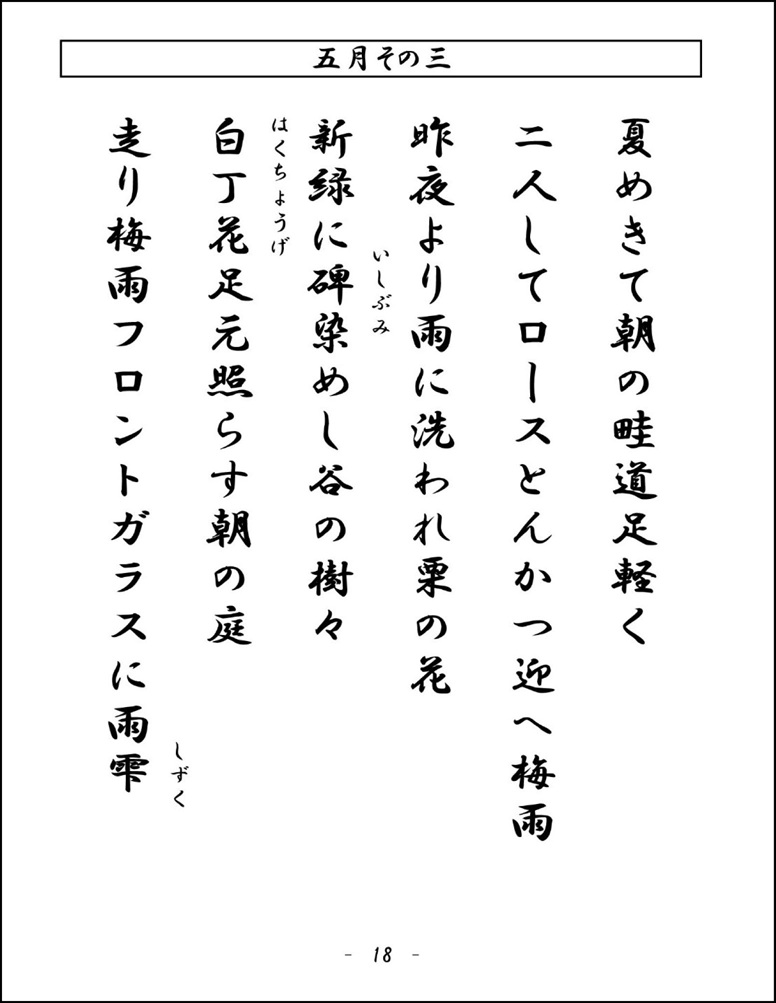 五月その三
夏めきて朝の畦道足軽く
二人してロースとんかつ迎へ梅雨
昨夜より雨に洗われ栗の花
いしぶみ
新緑に碑染めし谷の樹々
はくちょうげ
白丁花足元照らす朝の庭
しずく
走り梅雨フロントガラスに雨雫
- 18 -